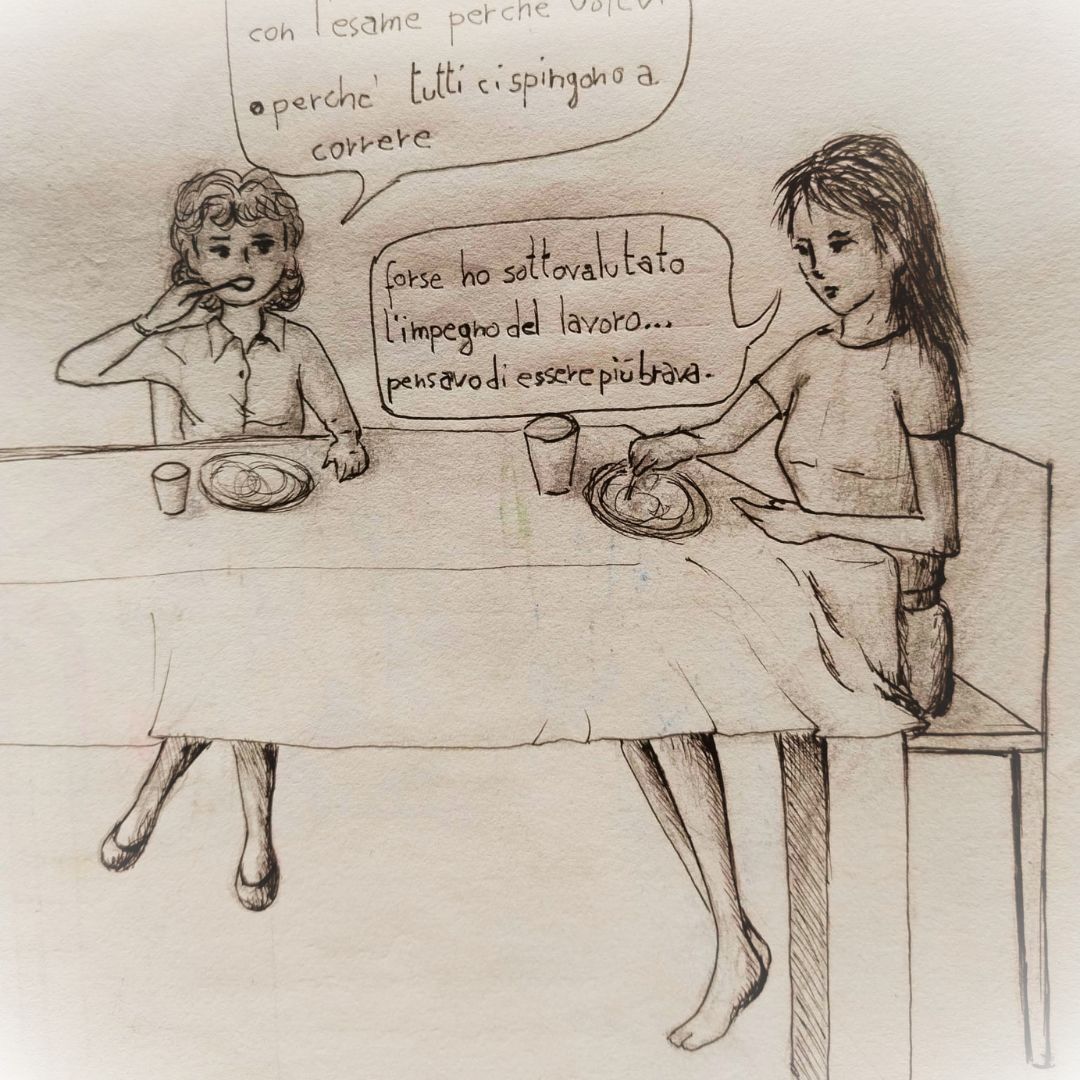 con l'esame perche volevi
o perche' tutti ci spingono a
correre
forse ho sottovalutato
l'impegno del lavoro...
pensavo di essere più brava.